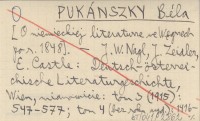 O PUKÁNSZKY Béla
[O niemieckiej literaturze w Węgrzech
po r. 1848]. — J. W. Nagl, J. Zeidler,
E. Castle: Deutsch-Österrei-
chische Literaturgeschichte,
Wien, mianowicie: tom 3 (1915)
547-577; tom 4 (bez roku wyd.) 1416-